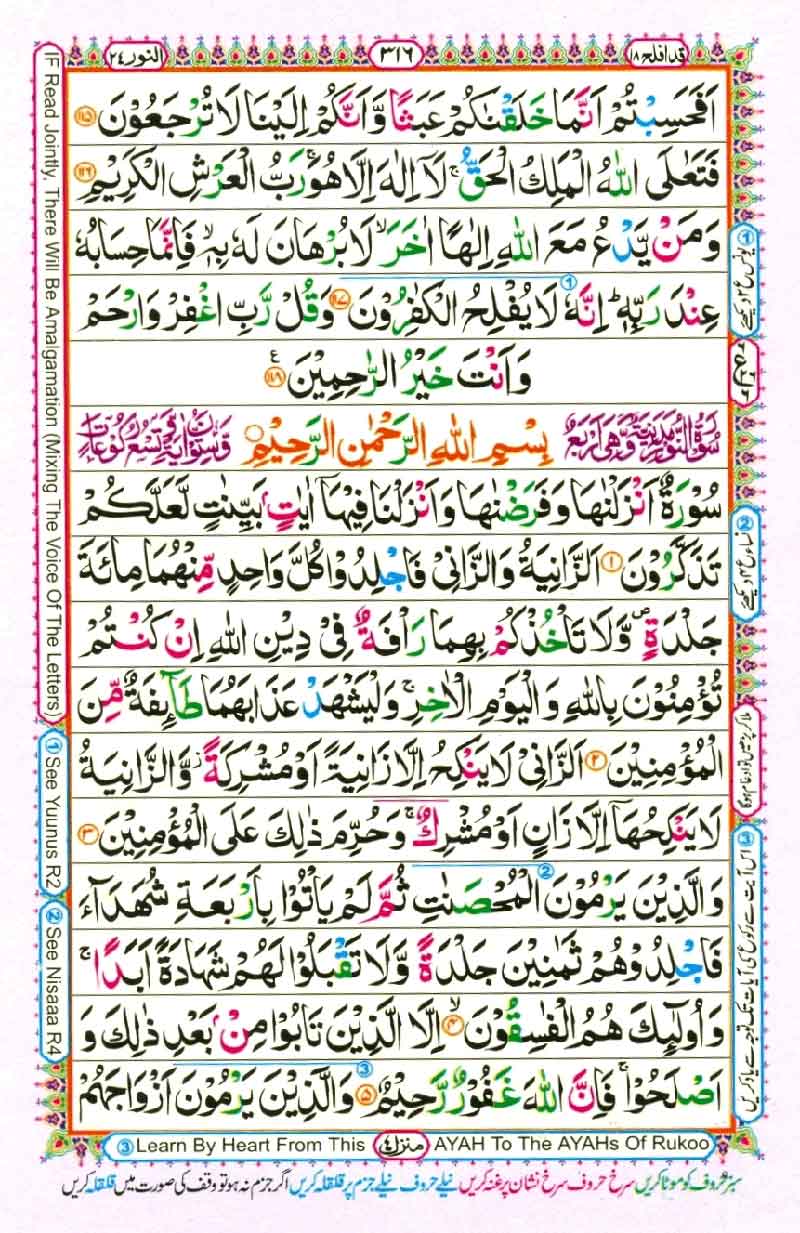 قد افلح ١٨
٣١٦
النور ٢٤
اَفَحَسِبْتُمْ اَنَّمَا خَلَقْنٰكُمْ عَبَثًا وَّاَنَّكُمْ اِلَيْنَا لَا تُرْجَعُوْنَ ١١٥
فَتَعٰلَى اللّٰهُ الْمَلِكُ الْحَقُّ ۚ لَاۤ اِلٰهَ اِلَّا هُوَ ۚ رَبُّ الْعَرْشِ الْكَرِيْمِ ١١٦
وَمَنْ يَّدْعُ مَعَ اللّٰهِ اِلٰهًا اٰخَرَ ۙ لَا بُرْهَانَ لَهٗ بِهٖ ۙ فَاِنَّمَا حِسَابُهٗ
عِنْدَ رَبِّهٖ ؕ اِنَّهٗ لَا يُفْلِحُ الْكٰفِرُوْنَ ١١٧ وَقُلْ رَّبِّ اغْفِرْ وَارْحَمْ
وَاَنْتَ خَيْرُ الرّٰحِمِيْنَ ١١٨ ع
سُوْرَةُ النُّوْرِ مَدَنِيَّةٌ وَّهِيَ اَرْبَعٌ بِسْمِ اللّٰهِ الرَّحْمٰنِ الرَّحِيْمِ وَّسِتُّوْنَ اٰيَةً وَّتِسْعُ رُكُوْعَاتٍ
سُوْرَةٌ اَنْزَلْنٰهَا وَفَرَضْنٰهَا وَاَنْزَلْنَا فِيْهَاۤ اٰيٰتٍۭ بَيِّنٰتٍ لَّعَلَّكُمْ
تَذَكَّرُوْنَ ١ اَلزَّانِيَةُ وَالزَّانِيْ فَاجْلِدُوْا كُلَّ وَاحِدٍ مِّنْهُمَا مِائَةَ
جَلْدَةٍ ۪ وَّلَا تَاْخُذْكُمْ بِهِمَا رَاْفَةٌ فِيْ دِيْنِ اللّٰهِ اِنْ كُنْتُمْ
تُؤْمِنُوْنَ بِاللّٰهِ وَالْيَوْمِ الْاٰخِرِ ۚ وَلْيَشْهَدْ عَذَابَهُمَا طَآئِفَةٌ مِّنَ
الْمُؤْمِنِيْنَ ٢ اَلزَّانِيْ لَا يَنْكِحُ اِلَّا زَانِيَةً اَوْ مُشْرِكَةً ؗ وَّالزَّانِيَةُ
لَا يَنْكِحُهَاۤ اِلَّا زَانٍ اَوْ مُشْرِكٌ ۚ وَحُرِّمَ ذٰلِكَ عَلَى الْمُؤْمِنِيْنَ ٣
وَالَّذِيْنَ يَرْمُوْنَ الْمُحْصَنٰتِ ثُمَّ لَمْ يَاْتُوْا بِاَرْبَعَةِ شُهَدَآءَ
فَاجْلِدُوْهُمْ ثَمٰنِيْنَ جَلْدَةً وَّلَا تَقْبَلُوْا لَهُمْ شَهَادَةً اَبَدًا ۚ
وَاُولٰٓئِكَ هُمُ الْفٰسِقُوْنَ ٤ ۙ اِلَّا الَّذِيْنَ تَابُوْا مِنْۢ بَعْدِ ذٰلِكَ وَ
اَصْلَحُوْا ۚ فَاِنَّ اللّٰهَ غَفُوْرٌ رَّحِيْمٌ ٥ وَالَّذِيْنَ يَرْمُوْنَ اَزْوَاجَهُمْ
① یونس ع ۲ دیکھئے
② نساء ع ۴ دیکھئے
IF Read Jointly, There Will Be Amalgamation (Mixing The Voice Of The Letters)
① See Yuunus R2
② See Nisaaa R4
③ Learn By Heart From This منزل ٤ AYAH To The AYAHs Of Rukoo
سبز حروف کو موٹا کریں سرخ حروف سرخ نشان پر غنہ کریں نیلے حروف نیلے جزم پر قلقلہ کریں اگر جزم نہ ہو تو وقف کی صورت میں قلقلہ کریں